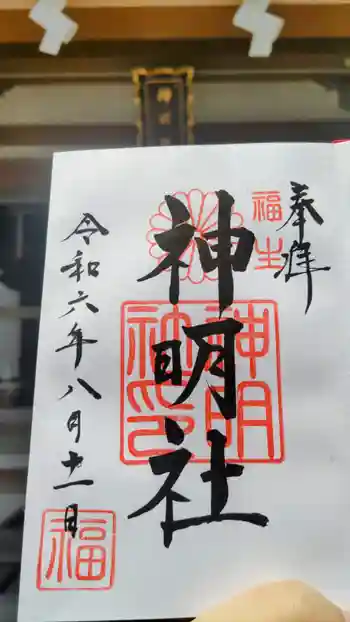 奉拝
福生
神明社
神明社印
令和六年八月十一日
福